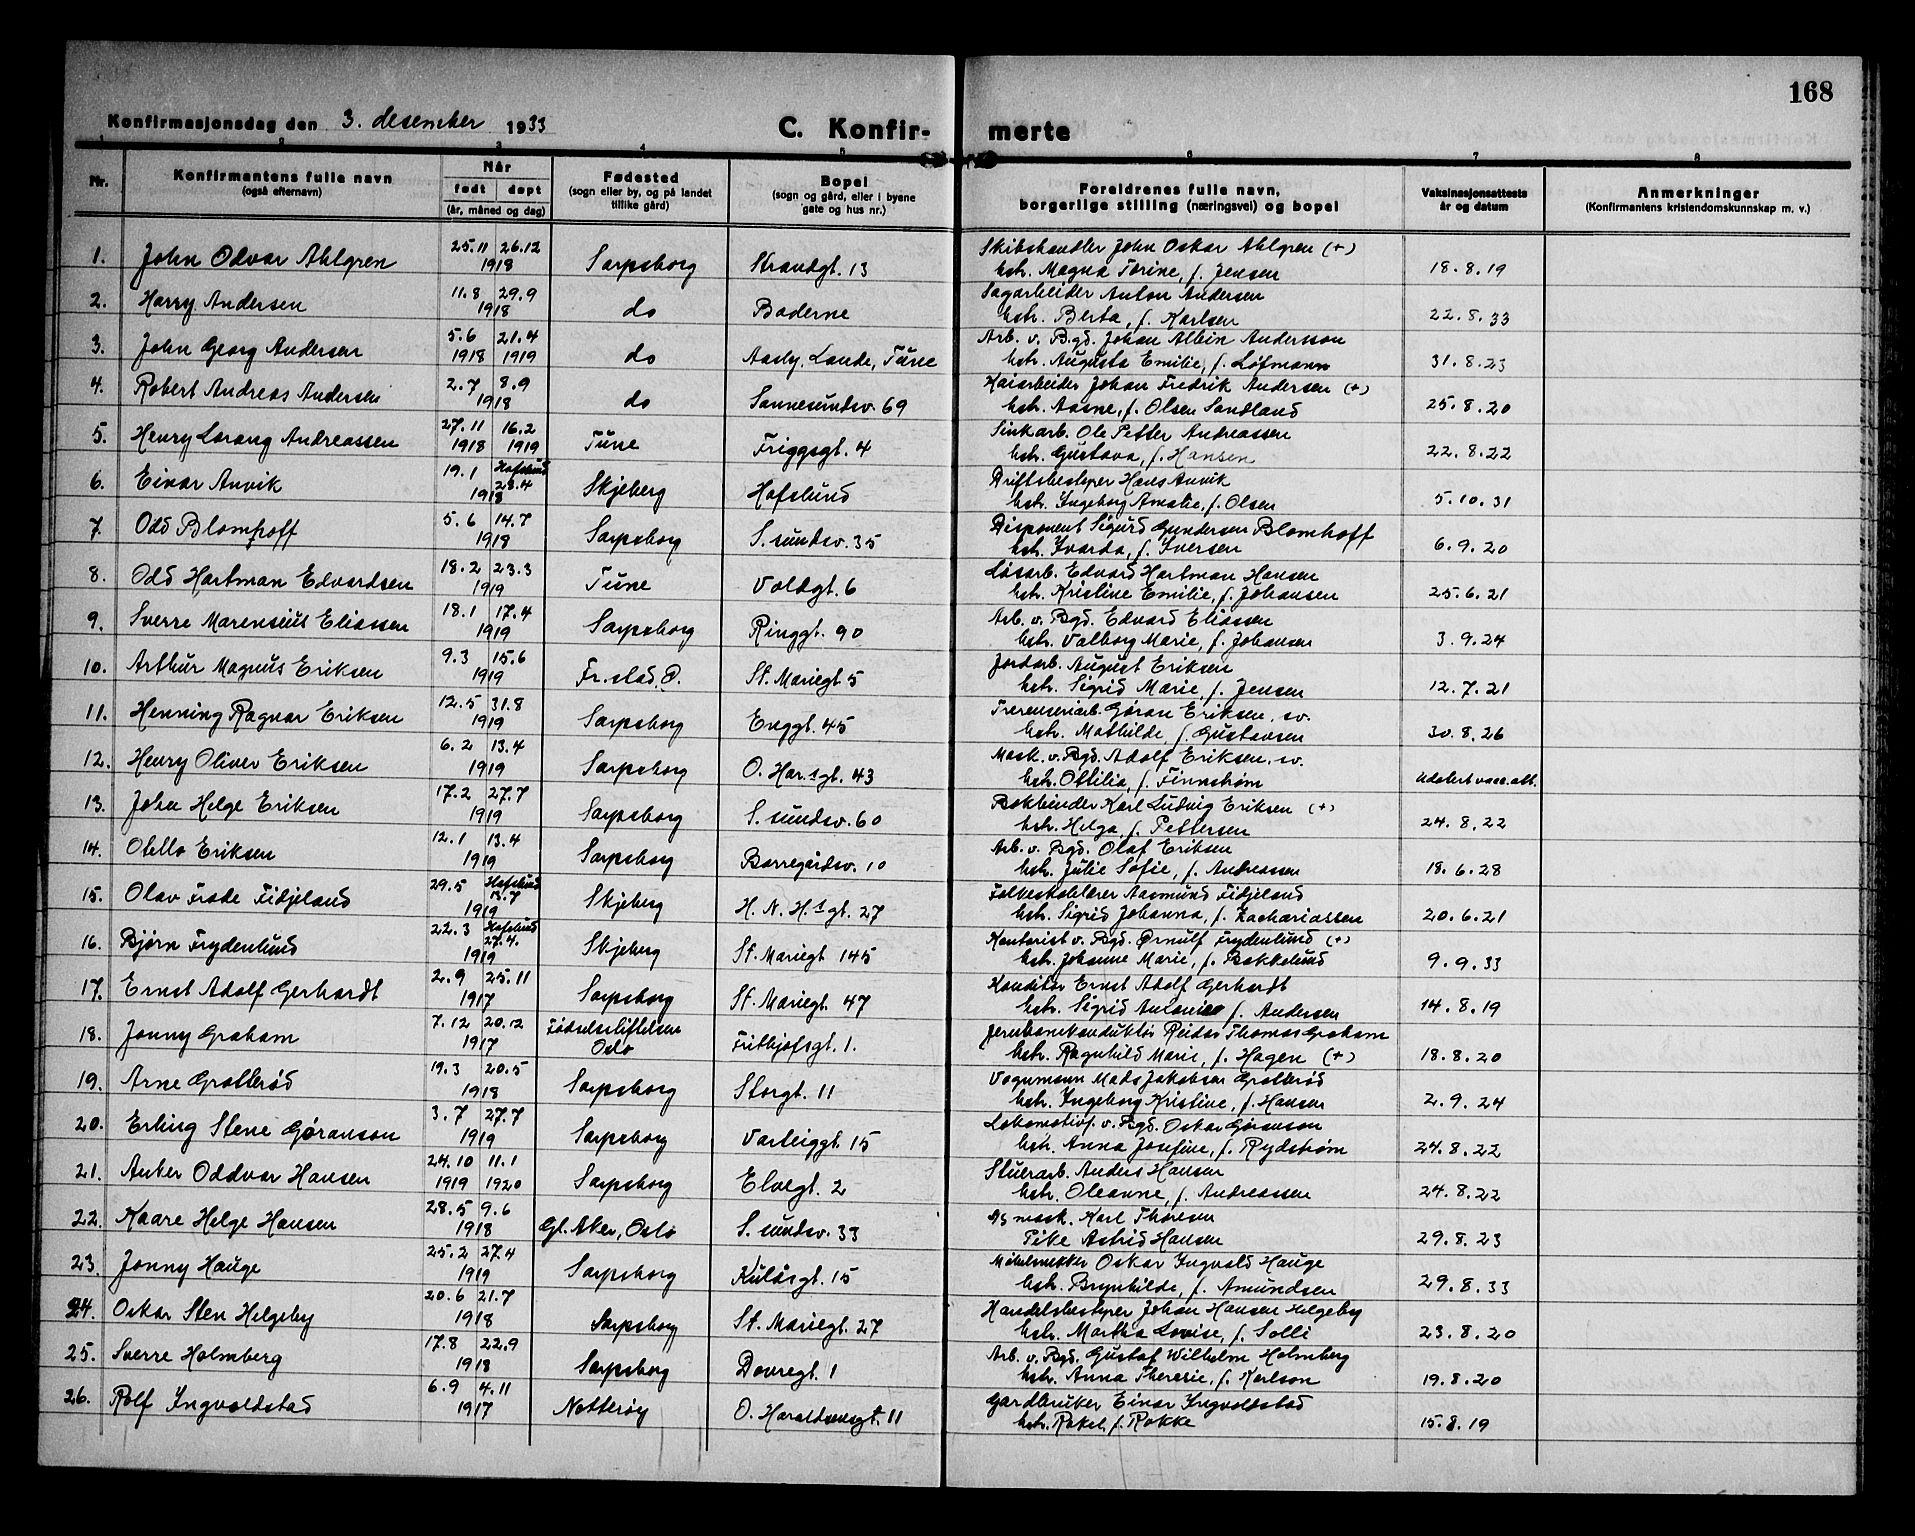 168
Konfirmasjonsdag den 3. desember 1933
C. Konfir- merte
1 2 3 4 5 6 7 8
Nr. Konfirmantens fulle navn (også efternavn) Når født døpt (år, måned og dag) Fødested (sogn eller by, og på landet tillike gård) Bopel (sogn og gård, eller i byene gate og hus nr.) Foreldrenes fulle navn, borgerlige stilling (næringsvei) og bopel Vaksinasjonsattests år og datum Anmerkninger (Konfirmantens kristendomskunnskap m. v.)
1. John Odvar Ahlgren 25.11 26.12 1918 Sarpsborg Strandgt. 13 Skibshandler John Oskar Ahlgren (+)
hstr. Magna Torine, f. Jensen 18.8.19
2. Harry Andersen 11.8 29.9 1918 do Baderne Sagarbeider Anton Andersen
hstr. Berta, f. Karlsen 22.8.33
3. John Georg Andersen 5.6 1918 21.4 1919 do Aasly, Lande, Tune Arb. v. Bgd. Johan Albin Andersson
hstr. Augusta Emilie, f. Löfmann 31.8.23
4. Robert Andreas Andersen 2.7 8.9 1918 do Sannesundsv. 69 Kaiarbeider Johan Fredrik Andersen (+)
hstr. Aasne, f. Olsen Sandland 25.8.20
5. Henry Lorang Andreassen 27.11 1918 16.2 1919 Tune Friggsgt. 4 Sinkarb. Ole Petter Andreassen
hstr. Gustava, f. Hansen 22.8.22
6. Einar Anvik 19.1 Hafslund 28.4 1918 Skjeberg Hafslund Driftsbestyrer Hans Anvik
hstr. Ingeborg Amalie, f. Olsen 5.10.31
7. Odd Blomhoff 5.6 14.7 1918 Sarpsborg S. sundsv. 35 Disponent Sigurd Gundersen Blomhoff
hstr. Ivarda, f. Iversen 6.9.20
8. Odd Hartman Edvardsen 18.2 23.3 1919 Tune Voldgt. 6 Løsarb. Edvard Hartman Hansen
hstr. Kristine Emilie, f. Johansen 25.6.21
9. Sverre Marensius Eliassen 18.1 17.4 1919 Sarpsborg Ringgt. 90 Arb. v. Bgd. Edvard Eliassen
hstr. Valborg Marie, f. Johansen 3.9.24
10. Arthur Magnus Eriksen 9.3 15.6 1919 Fr.stad, Ø. St. Mariegt 5 Jordarb. August Eriksen
hstr. Sigrid Marie, f. Jensen 12.7.21
11. Henning Ragnar Eriksen 12.5 31.8 1919 Sarpsborg Enggt. 45 Trerenseriarb. Göran Eriksen, sv.
hstr. Mathilde, f. Gustavsen 30.8.26
12. Henry Oliver Eriksen 6.2 13.4 1919 Sarpsborg O. Har.sgt. 43 Mask. v. Bgd. Adolf Eriksen, sv.
hstr. Ottilia, f. Finnstrøm Udatert vacc. att.
13. John Helge Eriksen 17.2 27.7 1919 Sarpsborg S. sundsv. 60 Bokbinder Karl Ludvig Eriksen (+)
hstr. Helga, f. Pettersen 24.8.22
14. Otello Eriksen 12.1 13.4 1919 Sarpsborg Borregårdsv. 10 Arb. v. Bgd. Olaf Eriksen
hstr. Julie Sofie, f. Andreassen 18.6.28
15. Olav Frode Fidjeland 29.5 Hafslund 13.7 1919 Skjeberg H. N. H.sgt. 27 Folkeskolelærer Aasmund Fidjeland
hstr. Sigrid Johanna, f. Zachariassen 20.6.21
16. Bjørn Frydenlund 22.3 Hafslund 27.4. 1919 Skjeberg St. Mariegt 145 Kontorist v. Bgd. Ørnulf Frydenlund (+)
hstr. Johanne Marie, f. Bakkelund 9.9.33
17. Ernst Adolf Gerhardt 2.9 25.11 1917 Sarpsborg St. Mariegt. 47 Konditor Ernst Adolf Gerhardt
hstr. Sigrid Antonie, f. Andersen 14.8.19
18. Jonny Graham 7.12 20.12 1917 Fødselsstiftelsen Oslo Frithjofsgt. 1. Jernbanekonduktør Reidar Thomas Graham
hstr. Ragnhild Marie, f. Hagen (+) 18.8.20
19. Arne Grotterød 19.3 20.5 1918 Sarpsborg Storgt. 11 Vognmann Mads Jakobsen Grotterød
hstr. Ingeborg Kristine, f. Hansen 2.9.24
20. Erling Stene Gøranson 3.7 27.7 1919 Sarpsborg Varteiggt. 15 Lokomotivf. v. Bgd. Oskar Gøranson
hstr. Anna Josefine, f. Rydstrøm 24.8.22
21. Anker Oddvar Hansen 24.10 1919 11.1 1920 Sarpsborg Elvegt. 2 Stuerarb. Anders Hansen
hstr. Oleanne, f. Andreassen 24.8.22
22. Kaare Helge Hansen 28.5 9.6 1918 Gl. Aker, Oslo S. sundsv. 33 mask. Karl Thoresen
Pike Astrid Hansen 29.8.23
23. Jonny Hauge 25.2 27.4 1919 Sarpsborg Kulåsgt. 15 Møbelsnekker Oskar Ingvald Hauge
hstr. Brynhilde, f. Amundsen 29.8.33
24. Oskar Sten Helgeby 20.6 21.7 1918 Sarpsborg St. Mariegt. 27 Handelsbestyrer Johan Hansen Helgeby
hstr. Martha Lovise, f. Solli 23.8.20
25. Sverre Holmberg 17.8 22.9 1918 Sarpsborg Dovregt. 1 Arb. v. Bgd. Gustaf Wilhelm Holmberg
hstr. Anna Therese, f. Karlson 19.8.20
26. Rolf Ingvoldstad 6.9 4.11 1917 Nøtterøy O. Haraldsonsgt. 11 Gardbruker Einar Ingvoldstad
hstr. Rakel, f. Rokke 15.8.19